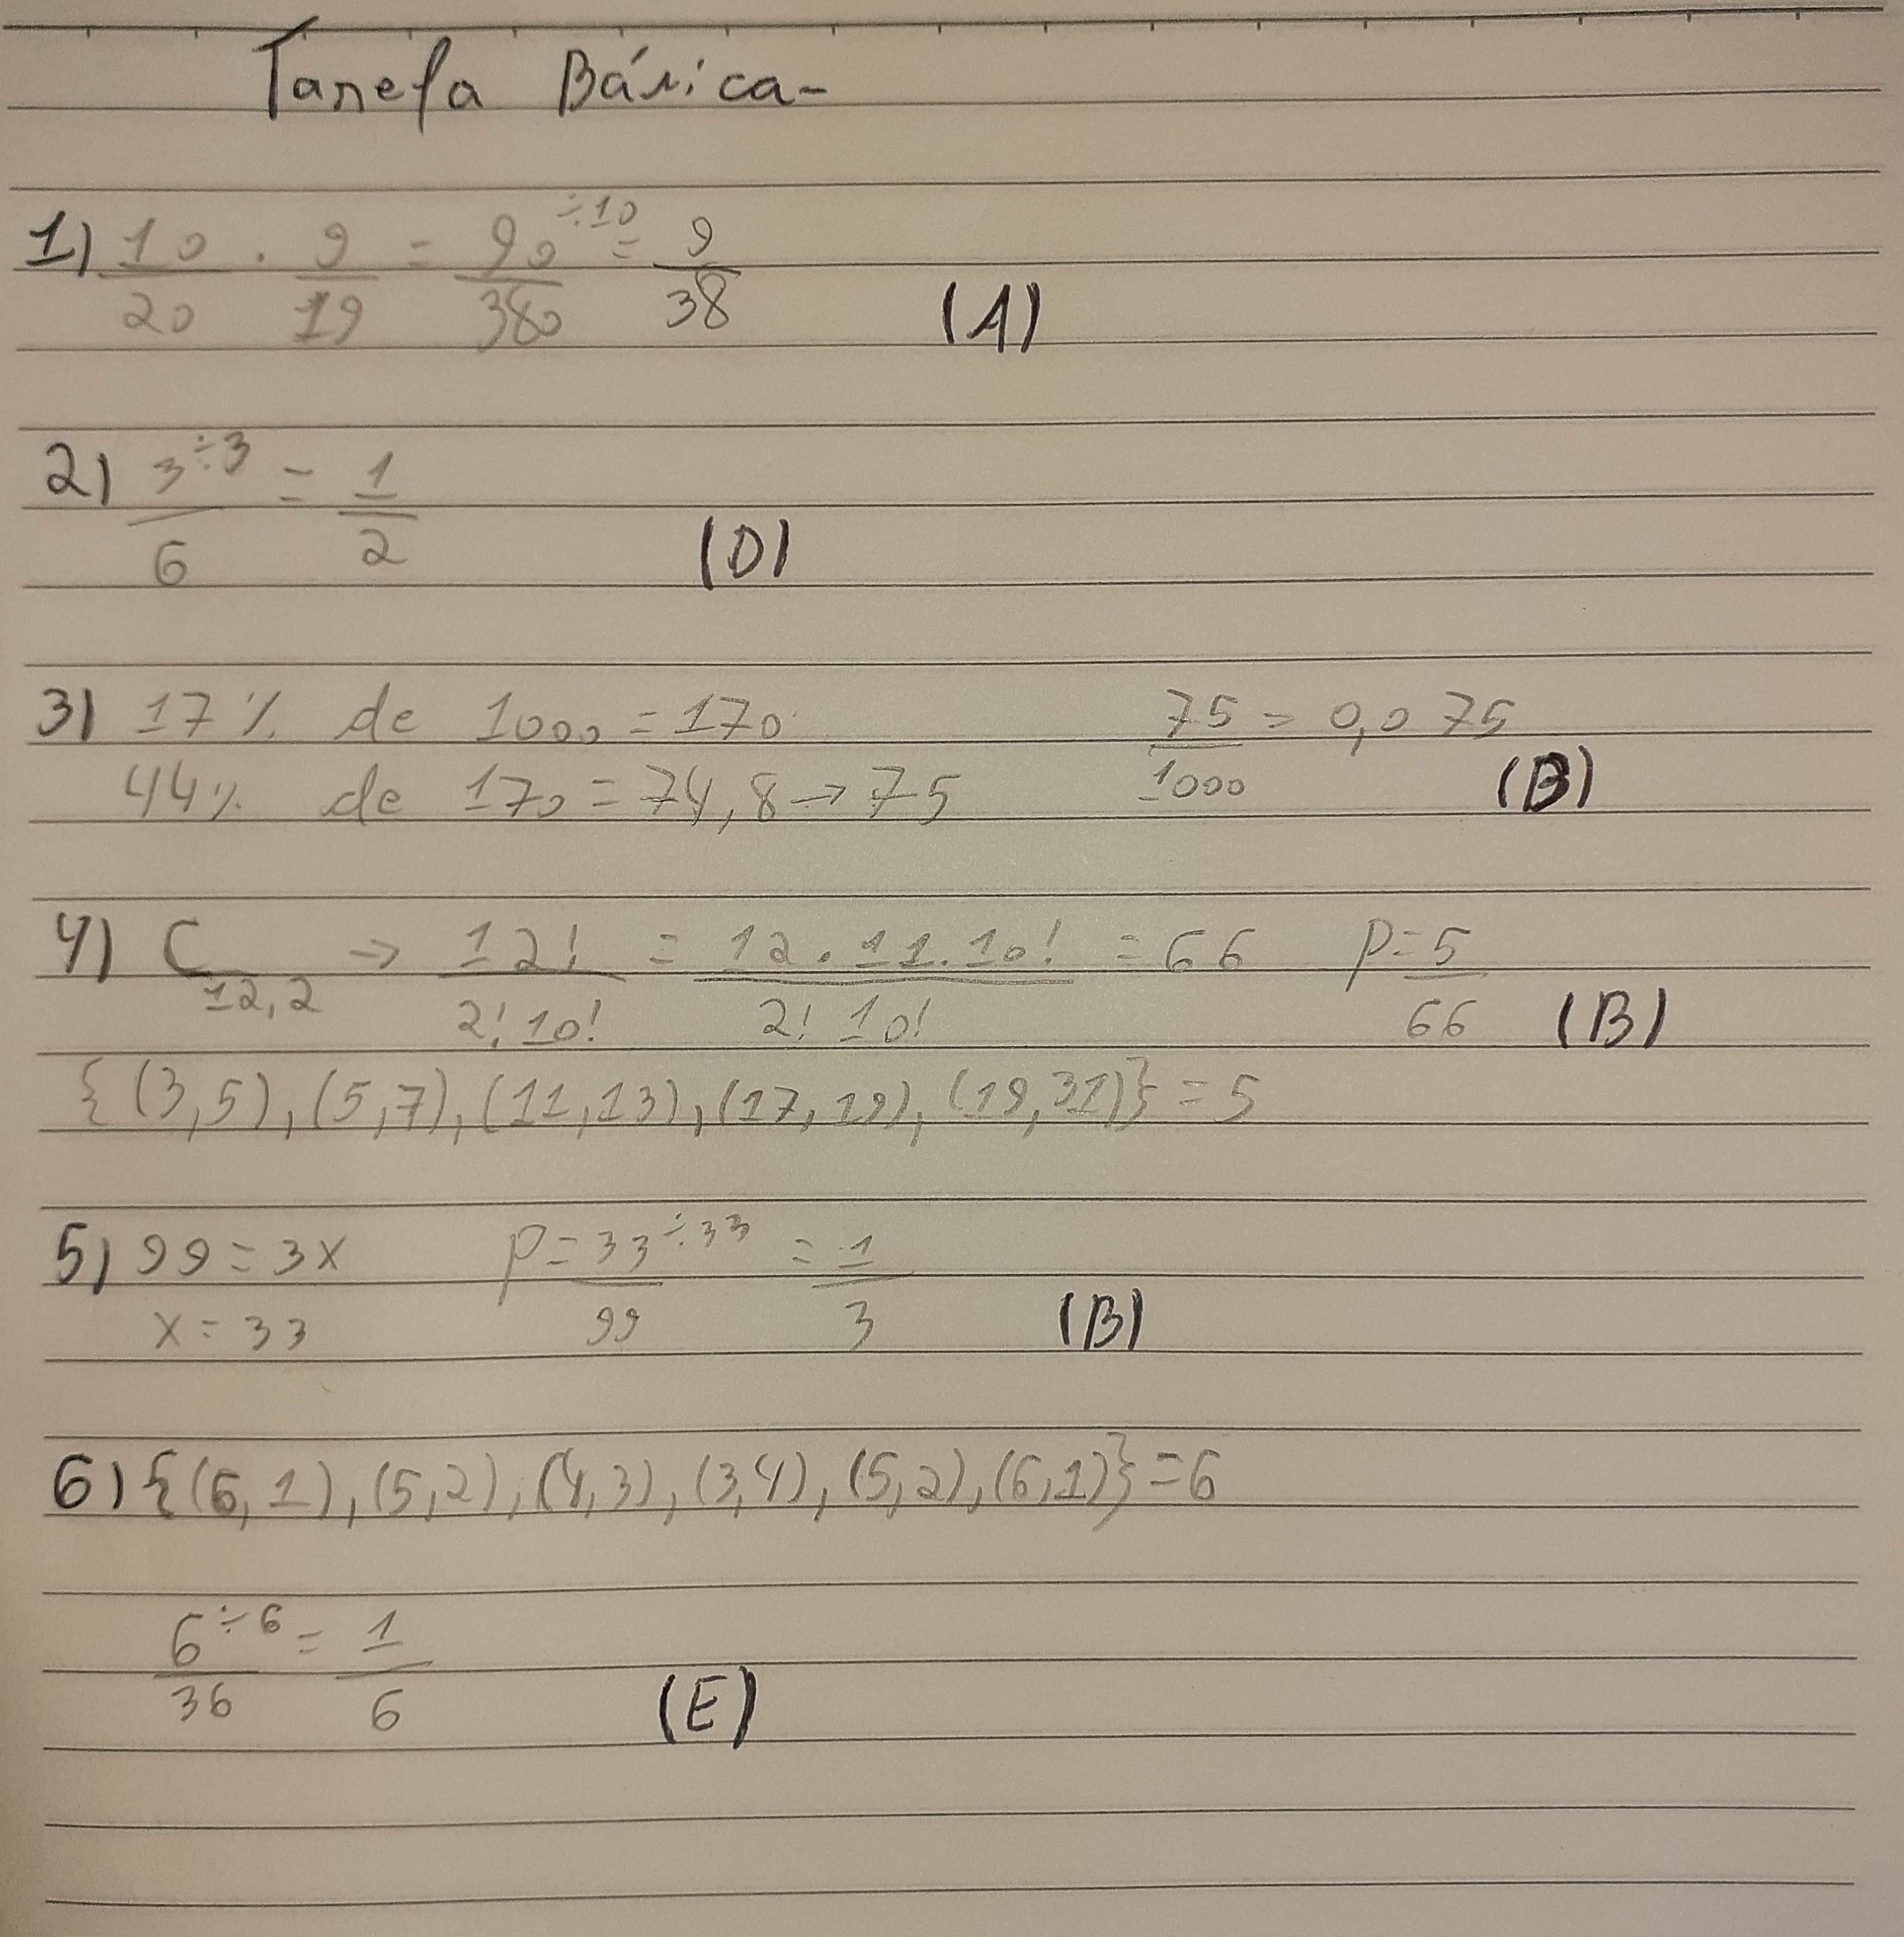 Tarefa Básica-
1) 10/20 . 9/19 = 90/380 ÷10 = 9/38 (A)
2) 3/6 ÷3 = 1/2 (D)
3) 17% de 1000 = 170 75/1000 = 0,075
44% de 170 = 74,8 → 75 (B)
4) C12,2 → 12!/2!10! = 12.11.10!/2!10! = 66 P=5/66 (B)
{(3,5),(5,7),(11,13),(17,19),(19,31)} = 5
5) 99 = 3x P = 33/99 ÷33 = 1/3 (B)
x = 33
6) {(6,1),(5,2),(4,3),(3,4),(5,2),(6,1)} = 6
6/36 ÷6 = 1/6 (E)